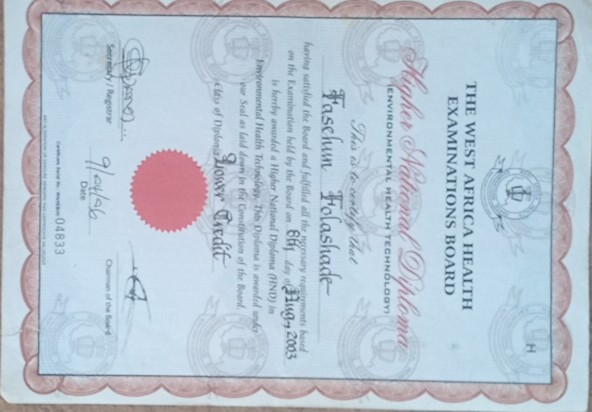 H
THE WEST AFRICA HEALTH
EXAMINATIONS BOARD
Higher National Diploma
(ENVIRONMENTAL HEALTH TECHNOLOGY)
This is to certify that
Faselun Folashade
having satisfied the Board and fulfilled all the necessary requirements based
on the Examination held by the Board on 8th day of Aug., 2003
is hereby awarded a Higher National Diploma (HND) in
Environmental Health Technology. This Diploma is awarded under
our Seal as laid down in the Constitution of the Board.
Class of Diploma Lower Credit
Secretary / Registrar
9/04/06
Date
Chairman of the Board
04833